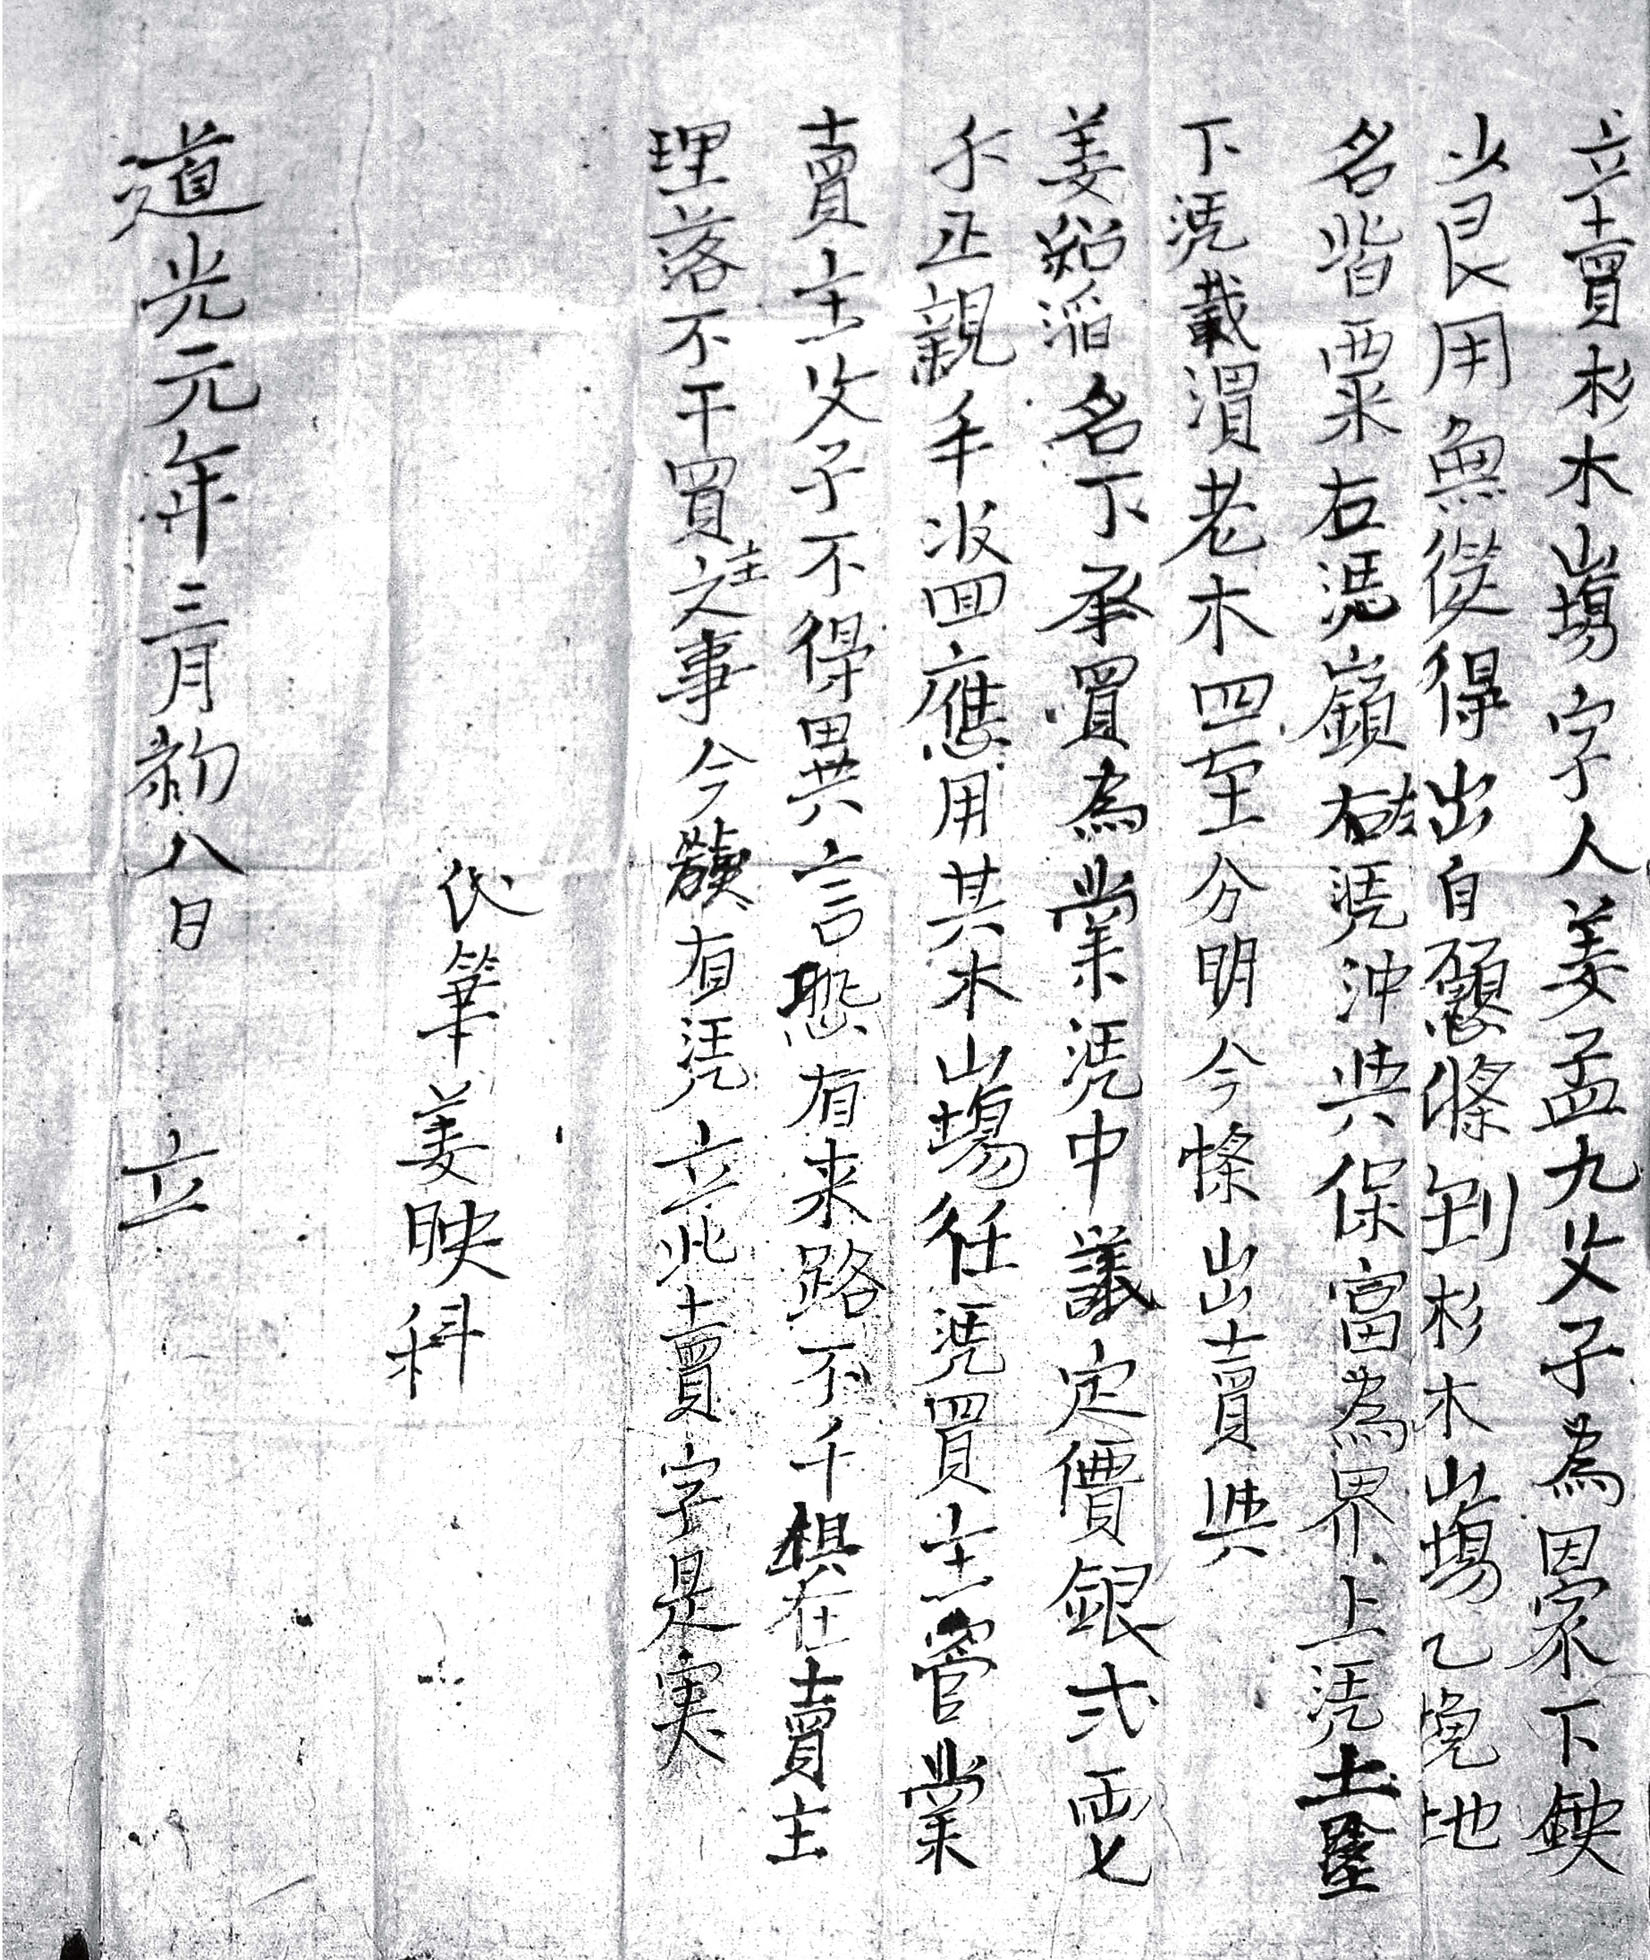 立賣杉木山塲字人姜孟九父子為因家下缺
少艮用無從得出自愿將到杉木山塲乙塊地
名皆粟右凴嶺右左凴沖與保富為界上凴土墾
下凴載渭老木四至分明今將山出賣與
姜紹滔名下承買為業凴中議定價銀弍両七
卜正親手收回應用其木山塲任凴買主管業
賣主父子不得異言恐有来路不千俱在賣主
理落不干買主之事今欲有凴立此賣字是実
代筆姜映科
道光元年三月初八日 立